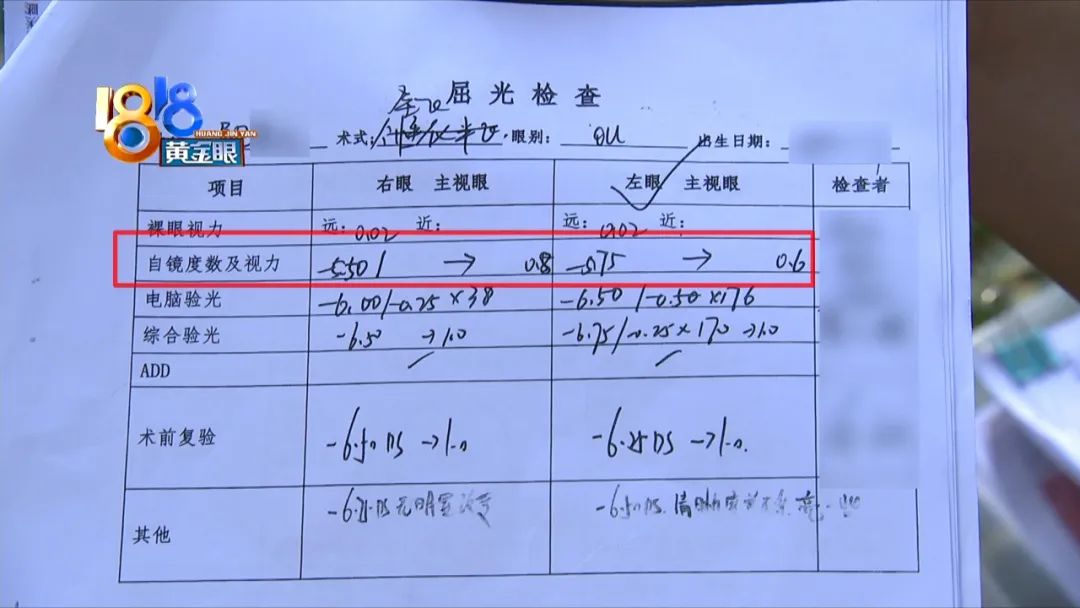 1818
HUANG JIN YAN
黄金眼
屈光检查
术式: 眼别: OU 出生日期:
项目 右眼 主视眼 左眼 主视眼 检查者
裸眼视力 远: 0.02 近: 远: 0.02 近:
自镜度数及视力 -5.50/ → 0.8 -5.75 → 0.6
电脑验光 -6.00/-0.25×38 -6.50/-0.50×176
综合验光 -6.50 →1.0 -6.75/-0.25×170→1.0
ADD
术前复验 -6.50DS→1.0 -6.25DS→1.0.
其他 -6.25DS无明显 -6.50DS.